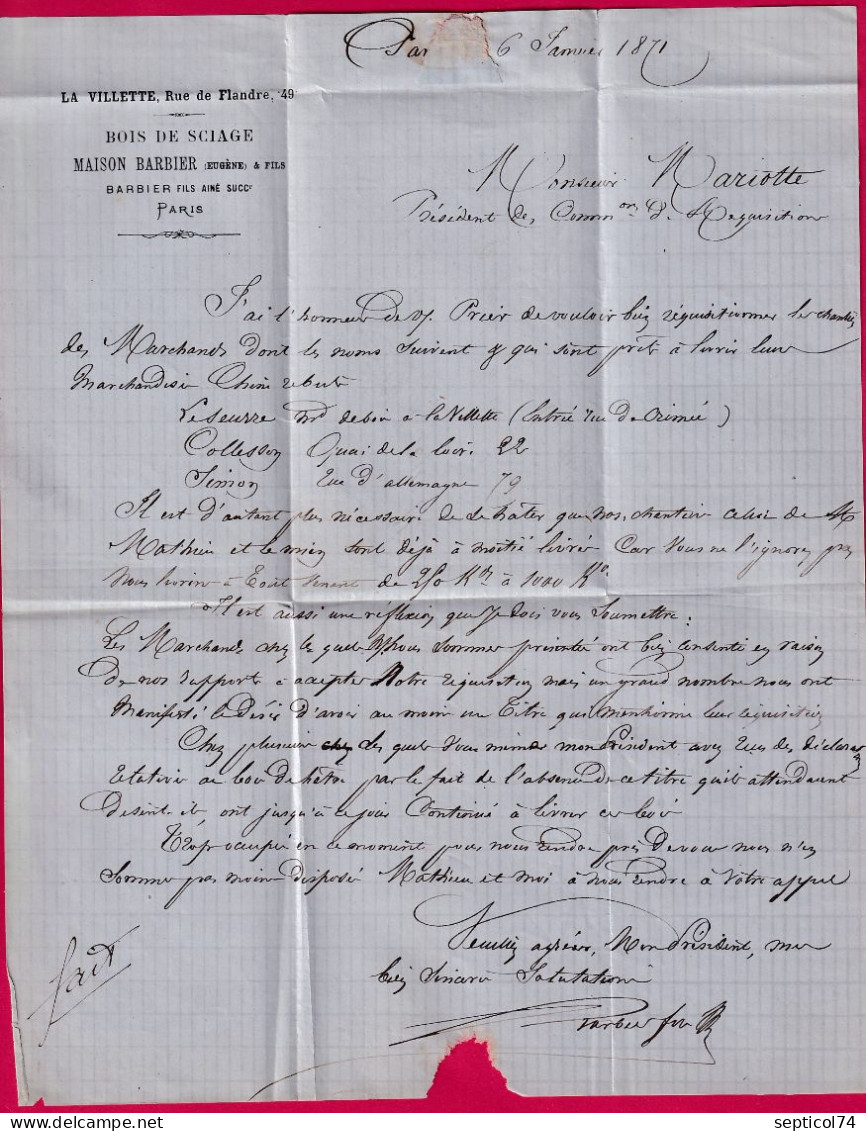 Par 6 Janvier 1871
LA VILLETTE, Rue de Flandre, 49
BOIS DE SCIAGE
MAISON BARBIER (EUGÈNE) & FILS
BARBIER FILS AINÉ SUCCR
PARIS
Monsieur Mariotte
Président des Commons de Réquisitions
J'ai l'honneur de V. Prier de vouloir bien réquisitionner les chantiers
des Marchands dont les noms suivent & qui sont prêts à livrer leur
Marchandise Chêne rebut
Leseurre Md de bois a la Villette (Entrée rue de Crimée)
Collesson Quai de la Loire 22
Simon Rue d'allemagne 79
Il est d'autant plus nécessaire de se hâter que nos chantiers celui de Mr
Mathieu et le mien sont déjà à moitié livrés Car Vous ne l'ignorez pas
Nous livrons à tout venant de 250 Ks à 1000 Ko
Il est aussi une réflexion que je dois vous soumettre:
Les Marchands chez les quels Nous sommes présentés ont bien consenti en raison
de nos rapports à accepter Notre réquisition mais un grand nombre nous ont
Manifesté le désir d'avoir au moins un titre qui mentionne leur réquisition
Chez plusieurs chez les quels Vous même mon Président avez eu des déclaraons
relative au bois de hêtre par le fait de l'absence de ce titre qu'ils attendaient
disent ils, ont jusqu'à ce jour Continué à livrer ces bois
Trop occupés en ce moment pour nous rendre près de vous nous n'en
Sommes pas moins disposés Mathieu et moi à nous rendre à Votre appel
Veuillez agréer, Mon Président, mes
bien sincères Salutations
Barbier fils
fait
septicol74